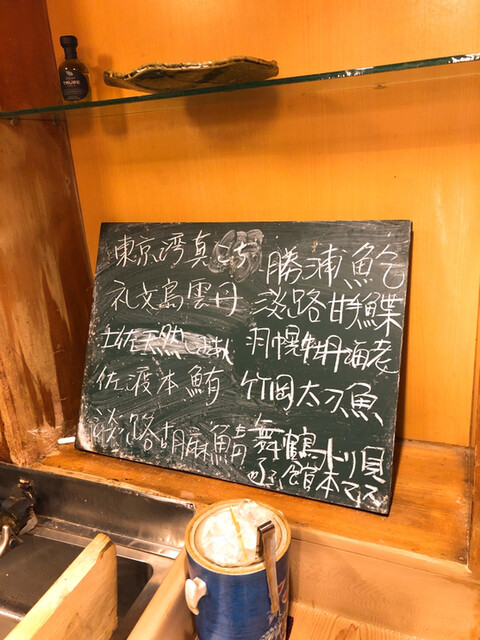 東京湾真こち
礼文島雲丹
土佐天然しまあじ
佐渡本鮪
淡路胡麻鯖
勝浦鮑
淡路甘鰈
羽幌牡丹海老
竹岡太刀魚
舞鶴トリ貝
函館本マス